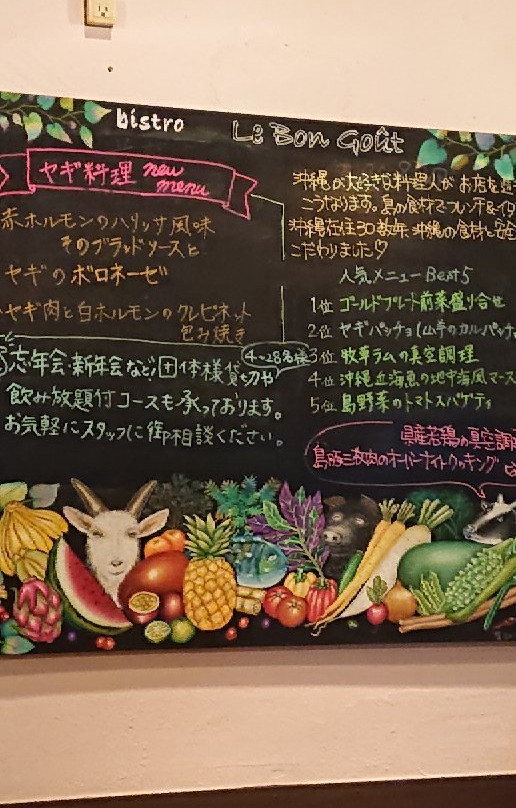 bistro Le Bon Goût
ヤギ料理 new menu
赤ホルモンのハリッサ風味
そのブラッドソースと
ヤギのボロネーゼ
ヤギ肉と白ホルモンのクレピネット
包み焼き
忘年会・新年会など、団体様貸切や
4〜28名様
飲み放題付コースも承っております。
お気軽にスタッフに御相談ください。
沖縄が大好きな料理人がお店を
こうなります。島の食材でフレンチ&イタ
沖縄在住30数年、沖縄の食材と安全
こだわりました♡
人気メニューBest5
1位 ゴールドプレート前菜盛り合せ
2位 ヤギパッチョ(山羊のカルパッチョ
3位 牧草ラムの真空調理
4位 沖縄近海魚の地中海風マース
5位 島野菜のトマトスパゲティ
県産若鶏の真空調
島豚三枚肉のオーバーナイトクッキング